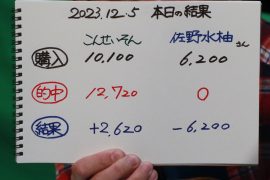 2023.12.5 本日の結果
こんせいそん 佐野水柚さん
購入 10,100 6,200
的中 12,720 0
結果 +2,620 -6,200